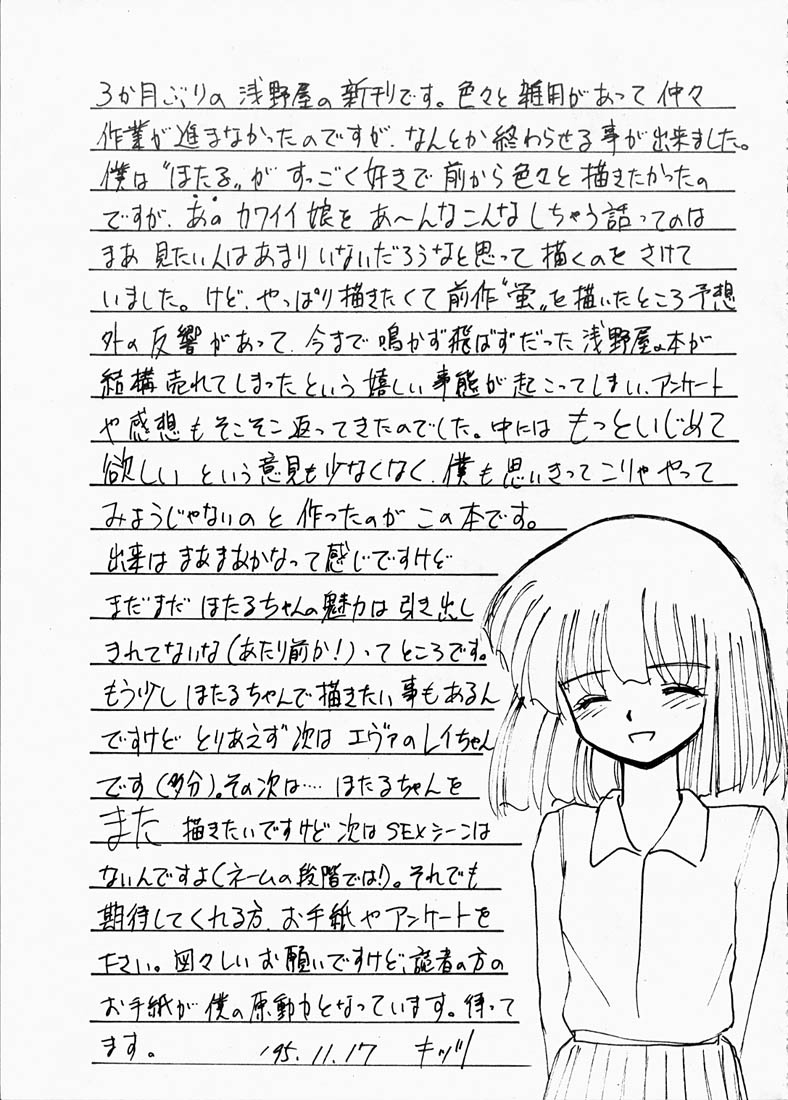 3か月ぶりの浅野屋の新刊です。色々と雑用があって仲々
作業が進まなかったのですが、なんとか終わらせる事が出来ました。
僕は“ほたる”がすっごく好きで前から色々と描きたかったの
ですが、あのカワイイ娘をあ〜んなこんなしちゃう話ってのは
まあ見たい人はあまりいないだろうなと思って描くのをさけて
いました。けど、やっぱり描きたくて前作“蛍”を描いたところ予想
外の反響があって、今まで鳴かず飛ばずだった浅野屋の本が
結構売れてしまったという嬉しい事態が起こってしまい、アンケート
や感想もそこそこ返ってきたのでした。中にはもっといじめて
欲しいという意見も少なくなく、僕も思いきってこりゃやって
みようじゃないのと作ったのがこの本です。
出来はまあまあかなって感じですけど
まだまだほたるちゃんの魅力は引き出し
きれてないな(あたり前か!)ってところです。
もう少しほたるちゃんで描きたい事もあるん
ですけどとりあえず次はエヴァのレイちゃん
です(多分)。その次は…‥ほたるちゃんを
また描きたいですけど次はSEXシーンは
ないんですよ(ネームの段階では!)。それでも
期待してくれる方、お手紙やアンケートを
下さい。図々しいお願いですけど、読者の方の
お手紙が僕の原動力となっています。待って
ます。 '95.11.17 キッヅ